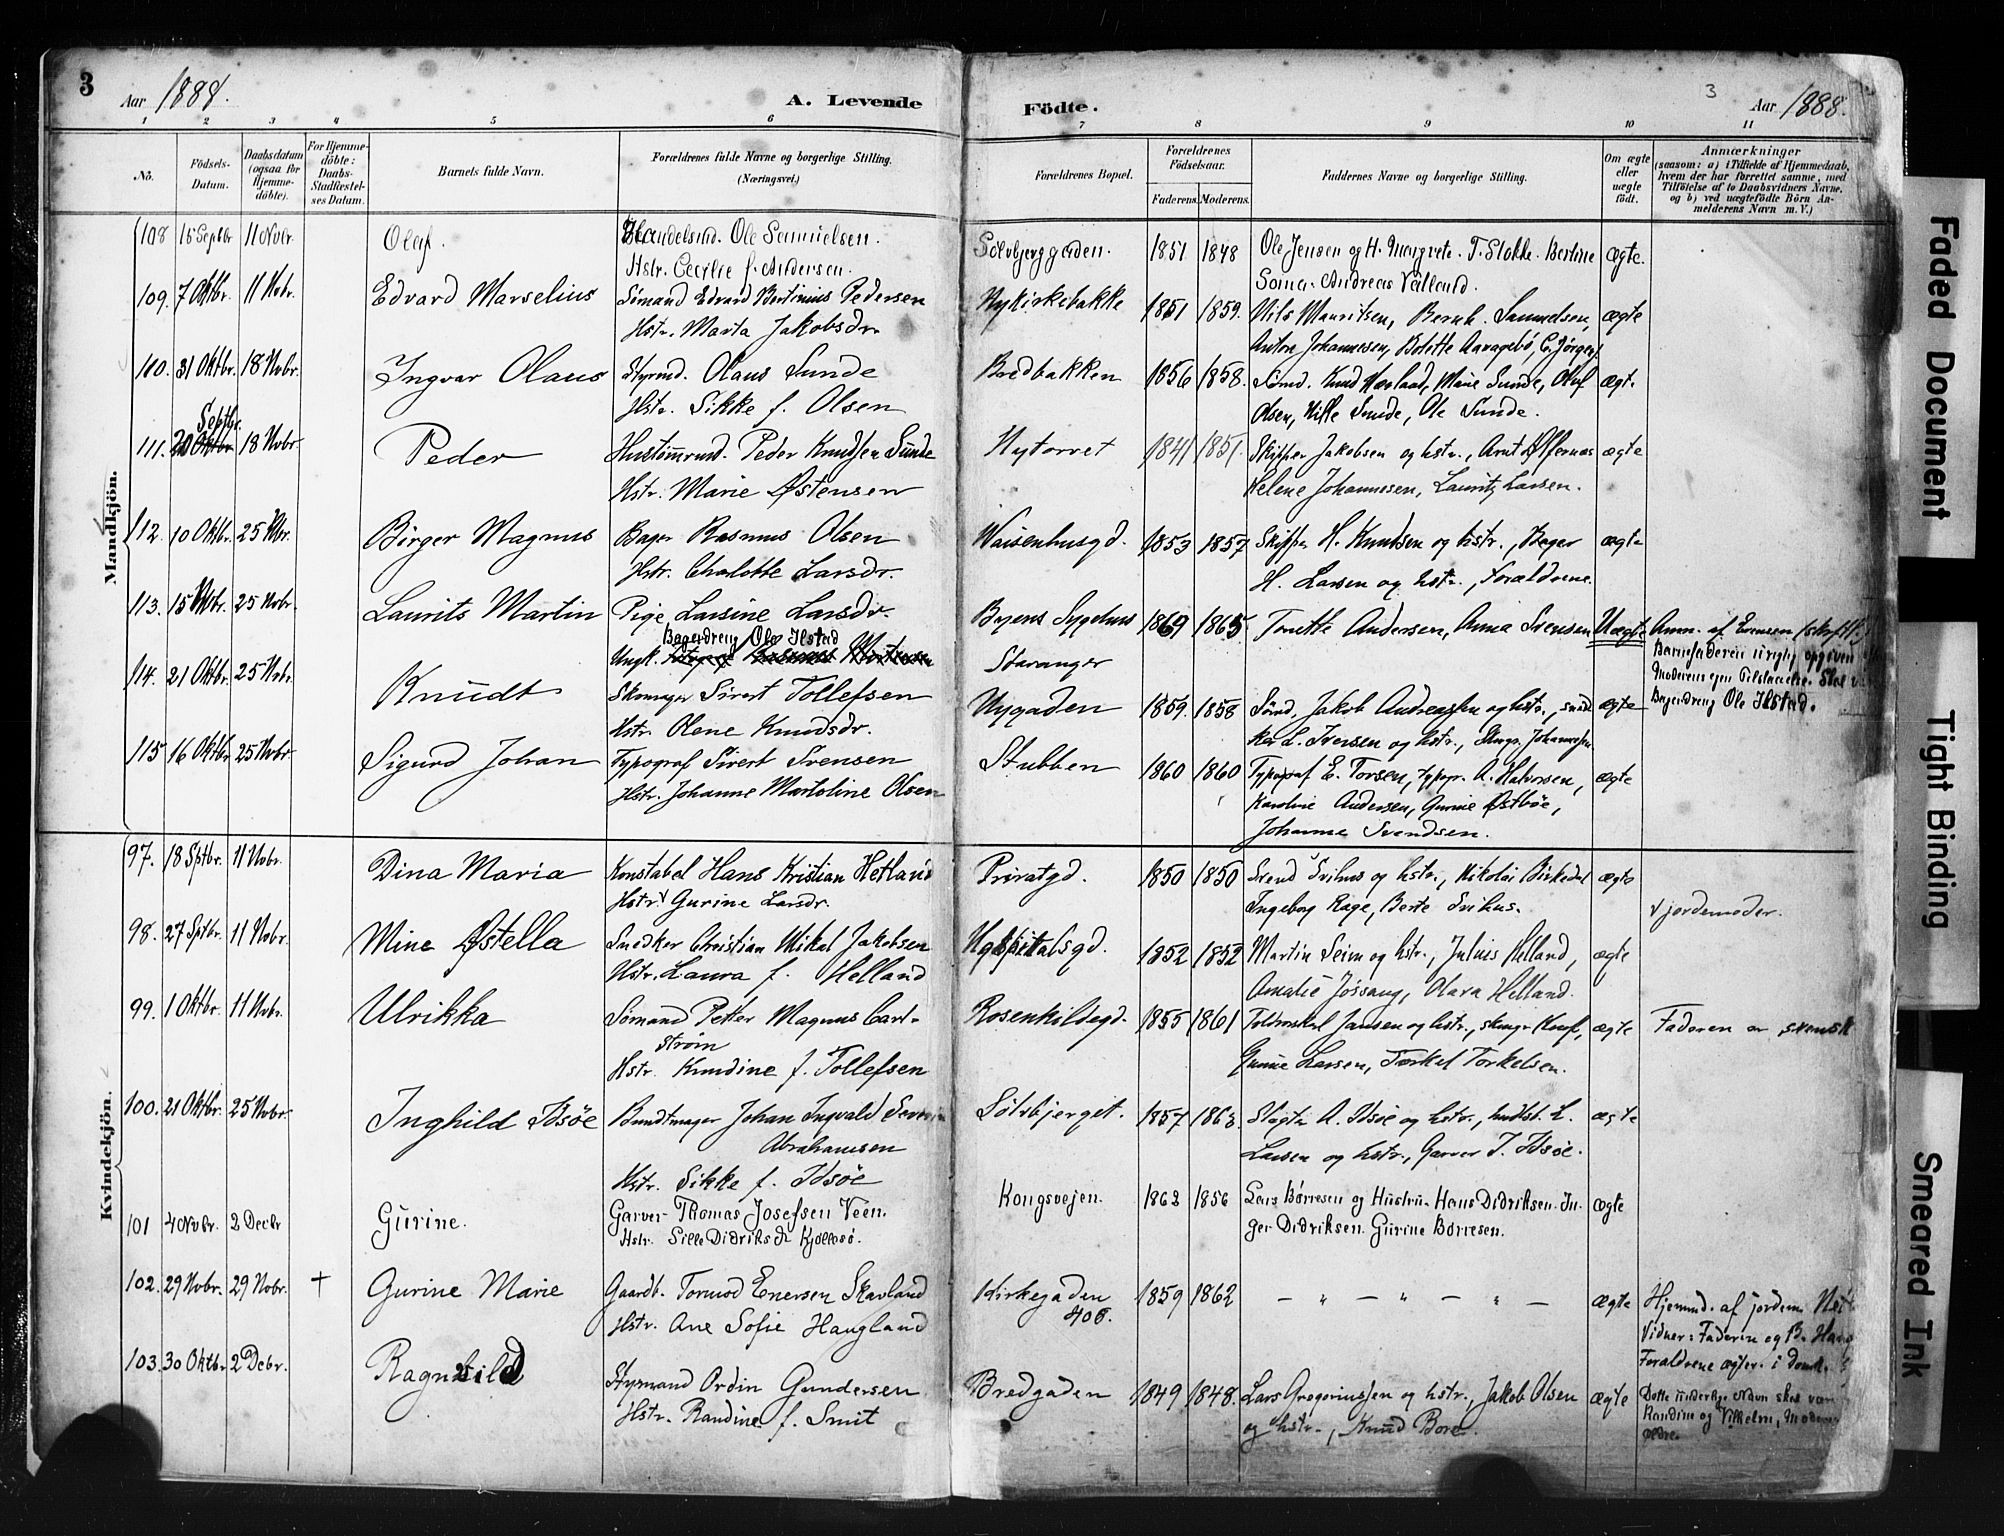 3
Aar 1888.
A. Levende
Födte.
3
Aar 1888.
1 2 3 4 5 6 7 8 9 10 11
No.
Födsels-
Datum.
Daabsdatum
(ogsaa for
Hjemme-
döbte).
For Hjemme-
döbte:
Daabs-
Stadfæstel-
ses Datum.
Barnets fulde Navn.
Forældrenes fulde Navne og borgerlige Stilling.
(Næringsvei.)
Forældrenes Bopæl.
Forældrenes
Födselsaar.
Faderens. Moderens.
Faddernes Navne og borgerlige Stilling.
Om ægte
eller
uægte
födt.
Anmærkninger
(saasom: a) i Tilfælde af Hjemmedaab,
hvem der har forrettet samme, med
Tilföielse af to Daabsvidners Navne,
og b) ved uægtefödte Börn An-
melderens Navn m. V.)
Mandkjön.
108 15 Septbr 11 Novbr. Olaf. Handelsmd. Ole Samuelsen. Sölvbjerggaden. 1851 1848 Ole Jensen og H. Margrete. T. Stokke. Bertine ægte.
Hstr. Cecilie f. Andersen. Soma. Andreas Vålland.
109. 7 Oktbr. 11 Nvbr. Edvard Marselius Sömand Edvard Bertinius Pedersen Nykirkebakke 1851 1859. Nils Mauritsen, Bernh. Samuelsen, ægte
Hstr. Marta Jakobsdr. Anton Johannesen, Bolette Aavagebö, C. Jörgens.
110. 31 Oktbr. 18 Nvbr. Ingvar Olaus Styrmd. Olaus Sunde Bredbakken 1856 1858. Sömd. Knud Marie Sunde, Oluf ægt.
Hstr. Sikke f. Olsen Olsen, Sunde, Ole Sunde.
Septbr.
111. 20 Oktbr 18 Nvbr. Peder Hustömrmd. Peder Knudsen Sunde Nytorvet 1841 1851. Skipper Jakobsen og hstr., Arnt ægte
Hstr. Marie Østensen Helene Johannesen, Lauritz Larsen.
112. 10 Oktbr. 25 Nvbr. Birger Magnus Bager Rasmus Olsen Waisenhusgd. 1853 1857 Skipper H. Knudsen og hstr., Bager ægte
Hstr. Charlotte Larsdr. H. Larsen og hstr., Forældrene.
113. 15 Nvbr. 25 Nvbr. Laurits Martin Pige Larsine Larsdr. Byens Sygehus 1869 1865 Tonette Andersen, Anna Svensen Uægte Anm. af Evensen (skriftl.)
Bagerdreng Ole Ilstad
Ungk. Stavanger Barnefaderen urigtig opgiven
Moderens egen Tilstaaelse.
114. 21 Oktbr. 25 Nvbr. Knudt Skomager Sivert Tollefsen Nygaden 1859. 1858 Sömd. Jakob Andreassen og hstr., sned ægte Bagerdreng Ole Ilstad.
Hstr. Olene Knudsdr. ker L. Iversen og hstr., Johannesen.
115 16 Oktbr 25 Nvbr. Sigurd Johan Typograf Sivert Svensen Stubben 1860 1860 Typograf E. Torsen, typogr. A. Halvorsen, ægte
Hstr. Johanne Martoline Olsen Karoline Andersen, Gurine Østböe,
Johanna Svendsen.
Kvindekjön.
97. 18 Sptbr. 11 Nvbr. Dina Maria Konstabel Hans Kristian Hetland Privatgd. 1850 1850 Svend Svihus og hstr., Nikolai Birkedal ægte
Hstr. v Gurine Larsdr. Ingeborg Rage, Berte Svihus. v jordemoder.
98. 27 Sptbr. 11 Nvbr. Mine Østella Snedker Christian Mikal Jakobsen Hospitalsgd. 1852 1852 Martin Seim og hstr., Julius Helland, ægte
Hstr. Laura f. Helland Amalie Jössang, Olara Helland.
99. 1 Oktbr. 11 Nvbr. Ulrikka Sömand Petter Magnus Carl- Rosenkildegd. 1855 1861 Toldroskarl Jansen og hstr., ægte Faderen er svensk
ström
Hstr. Knudine f. Tollefsen Gunne Larsen, Torkel Torkelsen.
100. 21 Oktbr. 25 Nvbr. Inghild Idsöe Bundtmager Johan Ingvald Severin Sölvbjerget. 1857 1863 Slagter A. Idsöe og hstr., L. ægte
Abrahamsen
Hstr. Sikke f. Idsöe Larsen og hstr., Garver T. Idsöe.
101 4 Nvbr. 2 Decbr Gurine. Garver Thomas Josefsen Veen. Kongsvejen. 1863 1856 Lars Börresen og Hustru. Hans Didriksen. In- ægte
Hstr. Sille Didriksdr Kjöllesö. ger Didriksen. Gurine Börresen.
102. 29 Nvbr. 29 Nvbr. + Gurine Marie Gaardb. Tormod Enersen Skavland Kirkegaden 1859 1862 — „ — „ — „ — ægte Hjemmd. af jordem.
Hstr. Ane Sofie Haugland 406. Vidner: Faderen og B.
103. 30 Oktbr 2 Debr. Ragnhild Forældrene ægtev. i Domk.
Styrmand Ordin Gundersen Bredgaden 1849 1848. Lars Gregoriussen og hstr., Jakob Olsen ægte Dette underlige Navn skal være
Hstr. Randine f. Smit og hstr., Knud Bore. Randine og Vilhelm, Moderens
Faded Document
Tight Binding
Smeared Ink